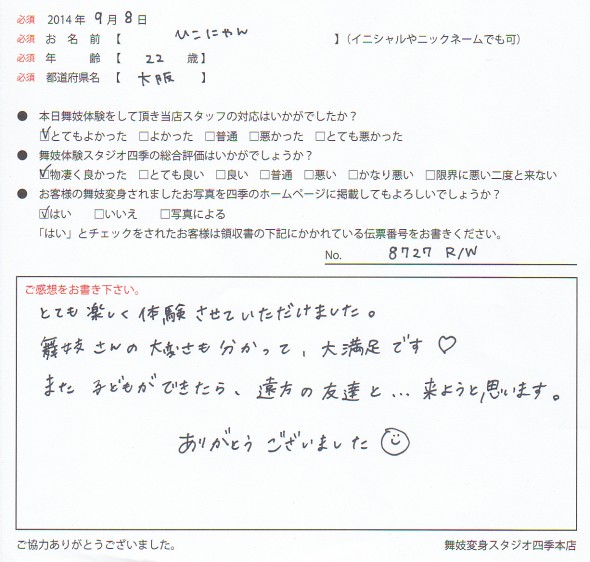 必須 2014年 9月 8日
必須 お名前【 ひこにゃん 】(イニシャルやニックネームでも可)
必須 年齢【 22 歳】
必須 都道府県名【 大阪 】
● 本日舞妓体験をして頂き当店スタッフの対応はいかがでしたか?
☑とてもよかった □よかった □普通 □悪かった □とても悪かった
● 舞妓体験スタジオ四季の総合評価はいかがでしょうか?
☑物凄く良かった □とても良い □良い □普通 □悪い □かなり悪い □限界に悪い二度と来ない
● お客様の舞妓変身されましたお写真を四季のホームページに掲載してもよろしいでしょうか?
☑はい □いいえ □写真による
「はい」とチェックをされたお客様は領収書の下記にかかれている伝票番号をお書きください。
No. 8727 R/W
ご感想をお書き下さい。
とても楽しく体験させていただけました。
舞妓さんの大変さも分かって、大満足です♡
また子どもができたら、遠方の友達と…来ようと思います。
ありがとうございました
ご協力ありがとうございました。 舞妓変身スタジオ四季本店